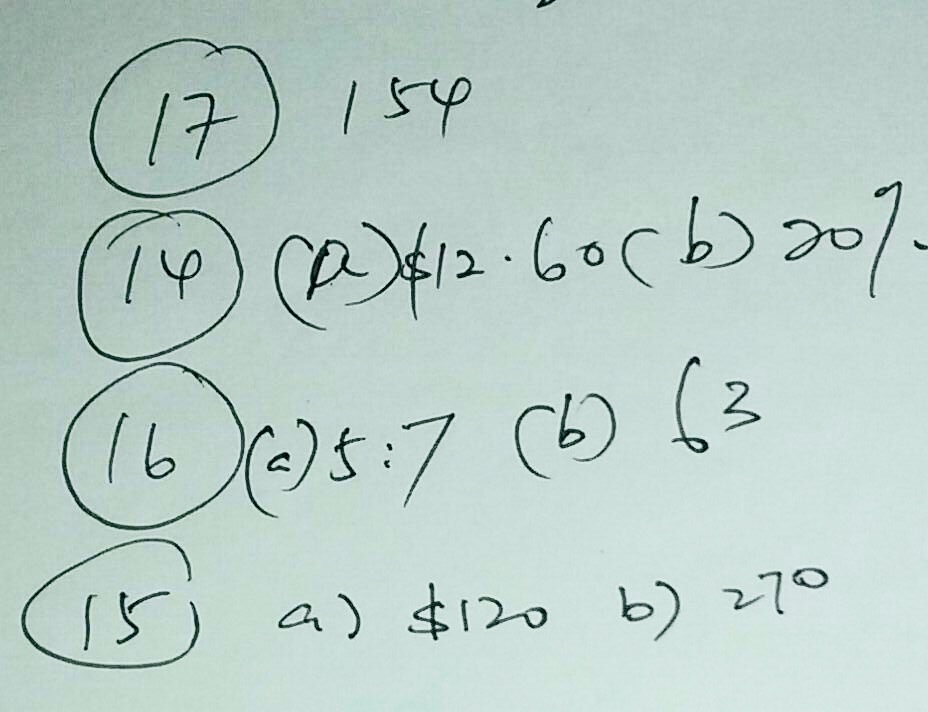 17 154
14 (a) $12.60 (b) 20%
16 (a) 5:7 (b) 63
15 a) $120 b) 270